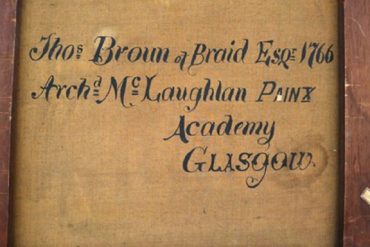 Thos Broun of Braid Esqr 1766
Archd McLaughlan Pinx
Academy
Glasgow.